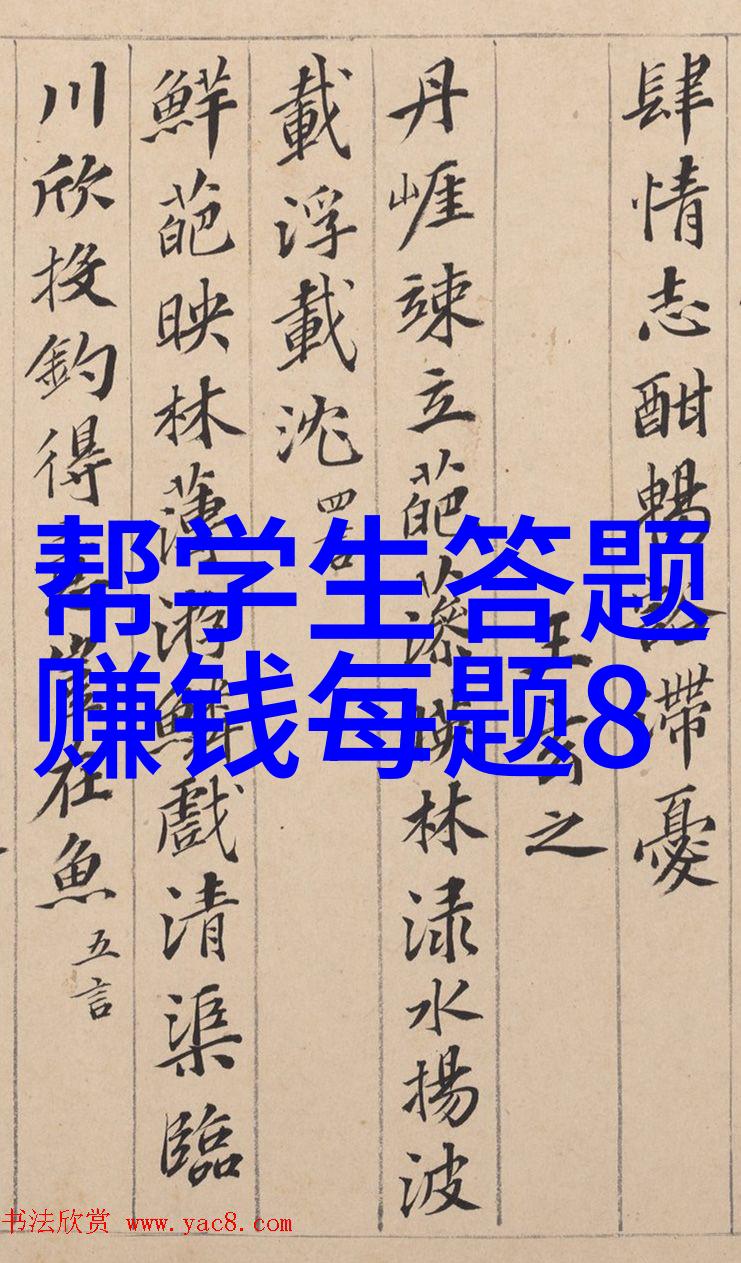 肆情志酣暢滯憂
王之
丹崕竦立葩藻映林淥水揚波
載浮載沈 四言
鮮葩映林薄游鱗戲清渠臨
川欣投釣得在魚 五言
帮学生答题
赚钱每题8
书法欣赏 www.yac8.com